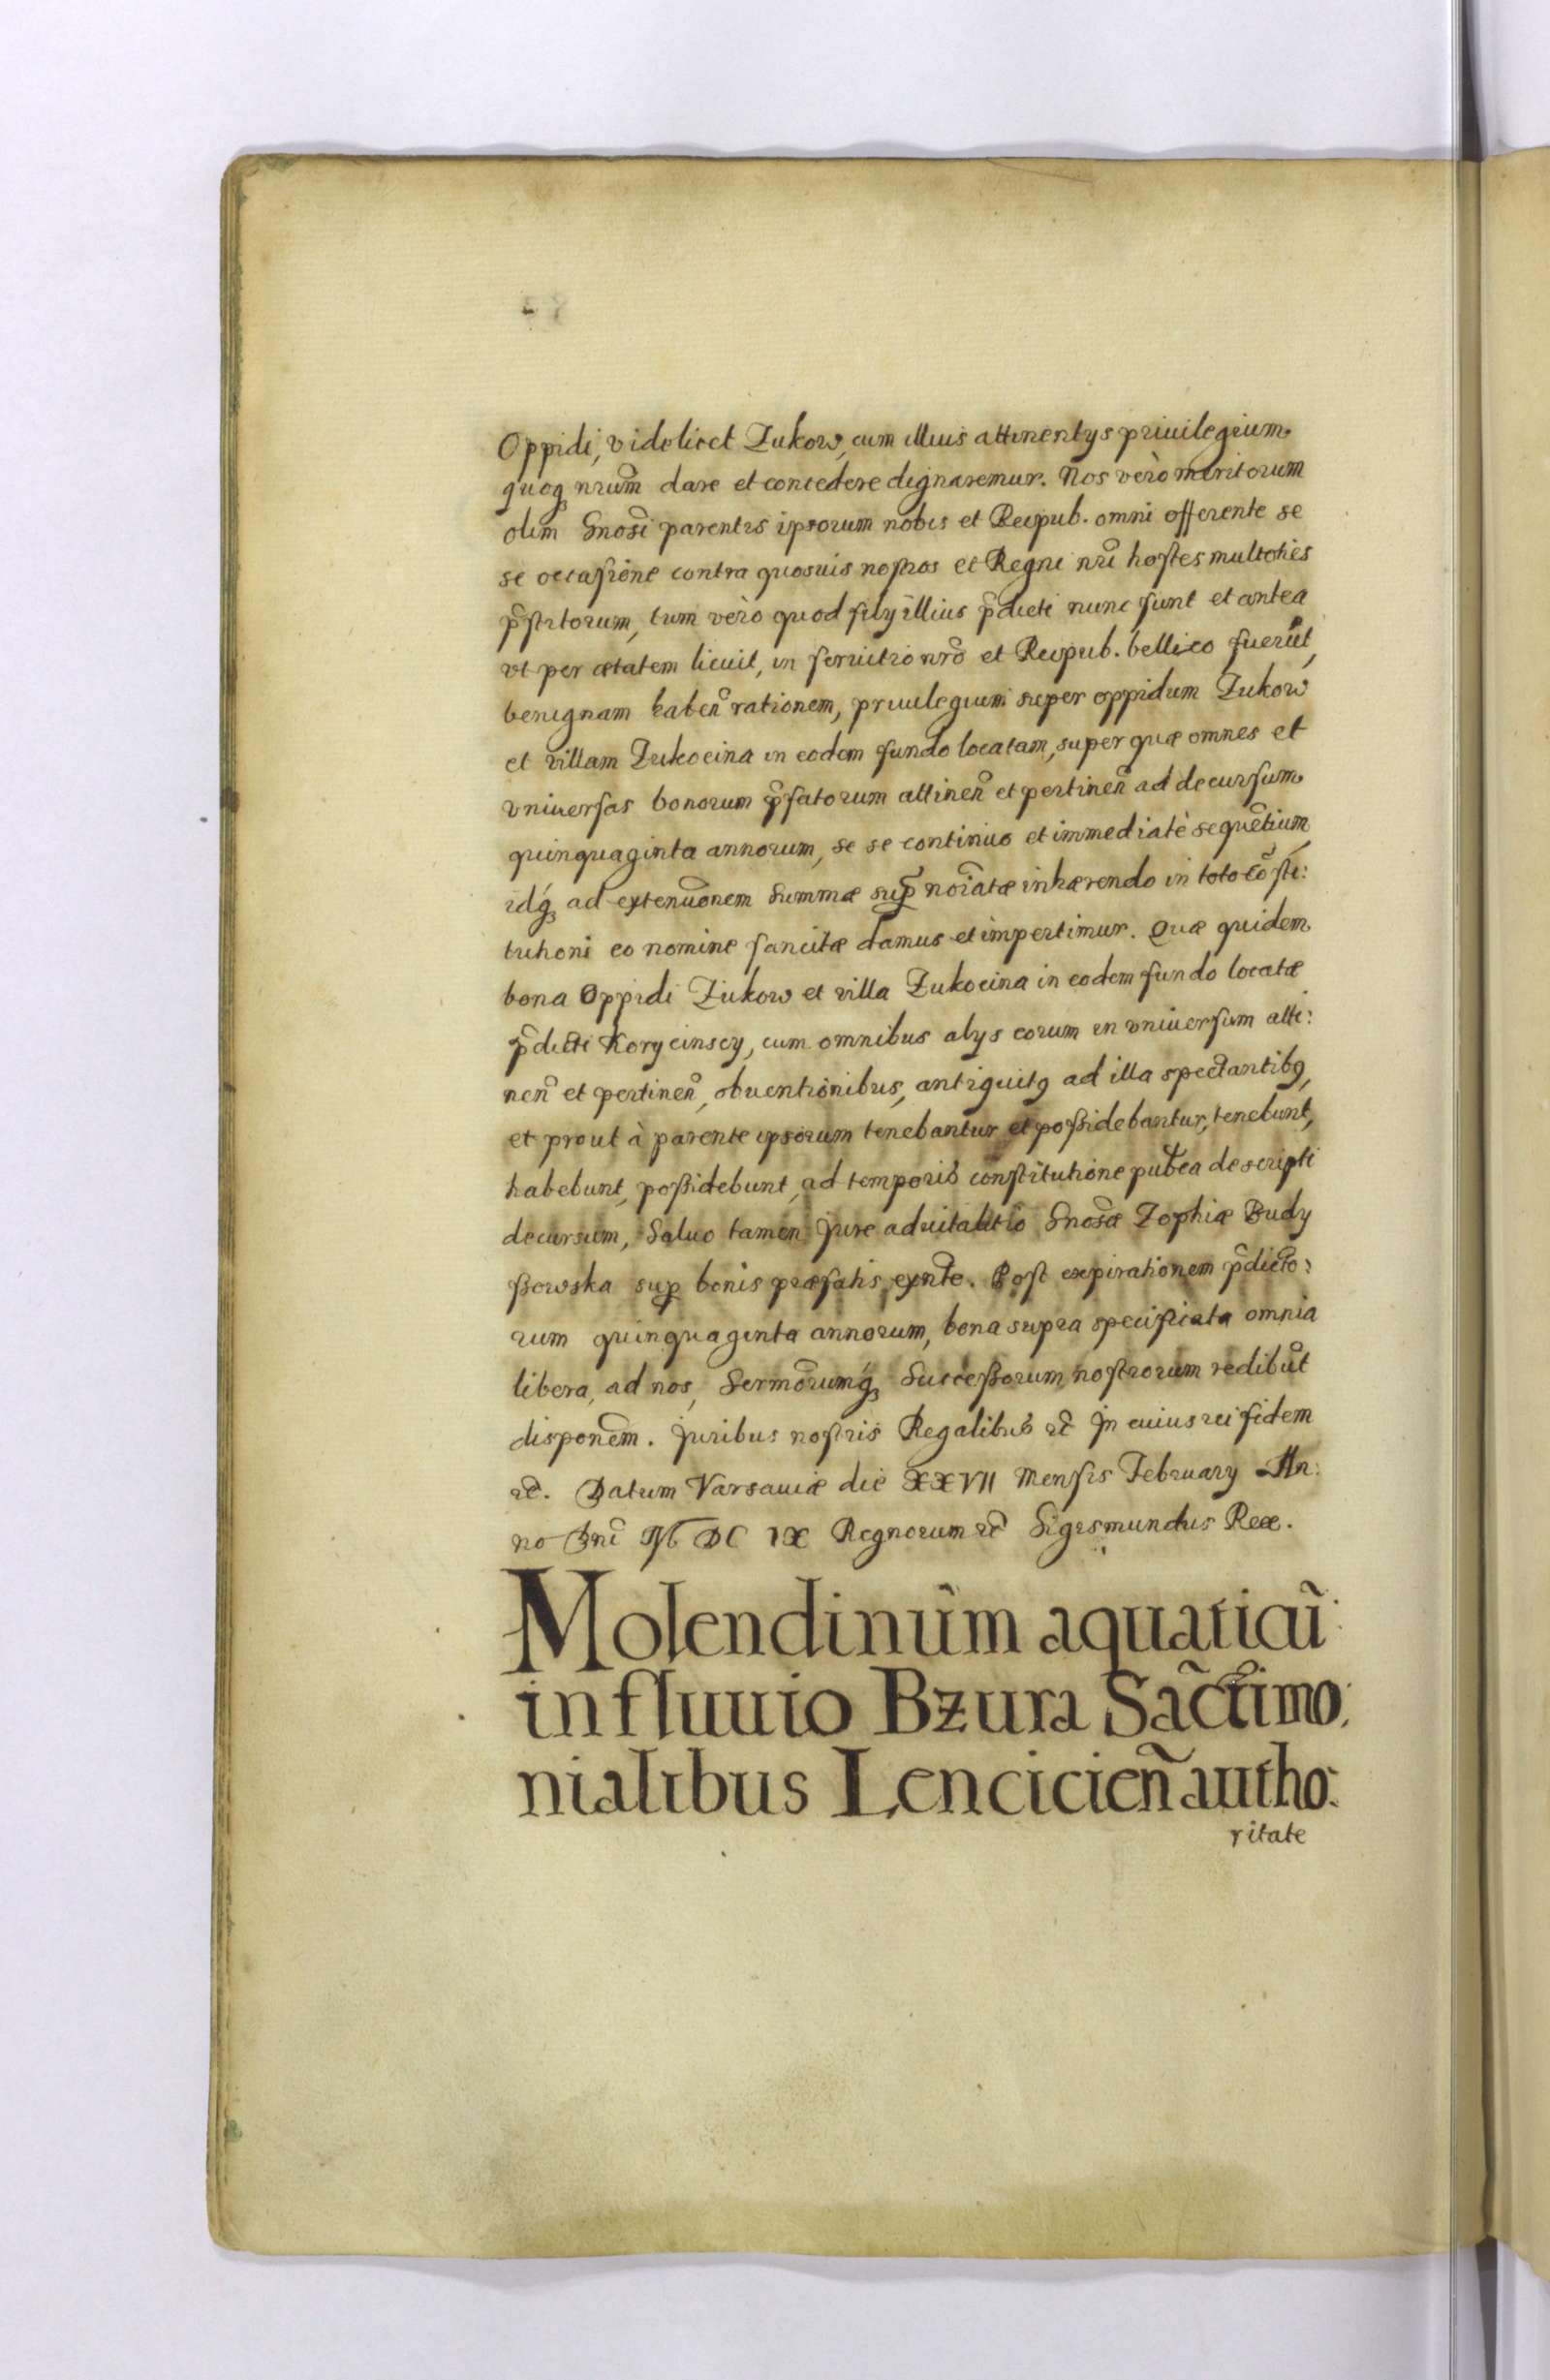 Oppidi, videlicet Zukow, cum illius attinentijs priuilegium
quoq nrum̃ dare et concedere dignaremur. Nos verò meritorum
olim Gnosi parentis ipsorum nobis et Reipub. omni offerente se
se occasione contra quosuis nostros et Regni nrĩ hostes multoties
p̃stitorum, tum verò quod filij illius p̃dicti nunc sunt et antea
vt per ætatem licuit, in seruitio nrõ et Reipub. bellico fuerũt,
benignam haben̄ rationem, priuilegium super oppidum Zukow
et villam Zukocina in eodem fundo locatam, super quæ omnes et
vniuersas bonorum p̃fatorum attinen̄ et pertinen̄ ad decursum
quinquaginta annorum, se se continuo et immediatè sequẽtium,
idq́ ad extenuõnem Summæ sup̃ noĩatæ inhærendo in toto cõsti:
tutioni eo nomine sancitæ damus et impertimur. Quæ quidem
bona Oppidi Zukow et villa Zukocina in eodem fundo locatæ
p̃dicti Korycinscy, cum omnibus alijs eorum in vniuersum atti:
nen̄ et pertinen̄, obuentionibus, antiquitq ad illa spectantibq,
et prout à parente ipsorum tenebantur et possidebantur, tenebunt,
habebunt, possidebunt, ad temporis constitutione publ̃ca descripti
decursum, Saluo tamen Jure aduitalitio Gnosæ Zophiæ Budy
szowska sup̃ bonis præfatis, exn̄te. Post expirationem p̃dicto:
rum quinquaginta annorum, bona supra specificata omnia
libera, ad nos, Sermõrumq́ Successorum nostrorum redibũt
disponẽm. Juribus nostris Regalibus etc̃ In cuius rei fidem
etc̃. Datum Varsauiæ die XXVII Mensis February An:
no Dnĩ M DC IX Regnorum etc̃ Sigismundus Rex.
Molendinũm aquaticũ
in fluuio Bzura Sãctimo:
nialibus Lencicien̄ autho:
ritate